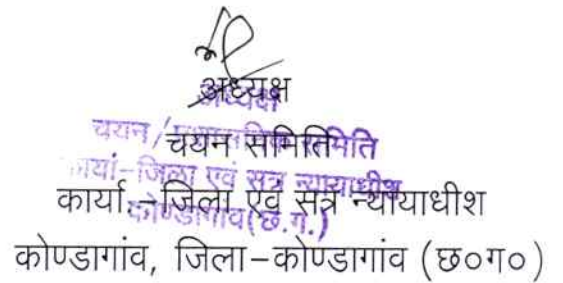 अध्यक्ष
चयन समिति
कार्या.–जिला एवं सत्र न्यायाधीश
कोण्डागांव, जिला–कोण्डागांव (छ०ग०)
अध्यक्ष
चयन / समिति
कार्या–जिला एवं सत्र न्यायाधीश
कोण्डागांव (छ.ग.)